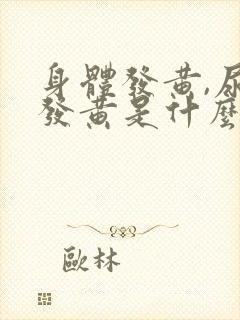 身體發黃,尿
發黃是什麼
歐林